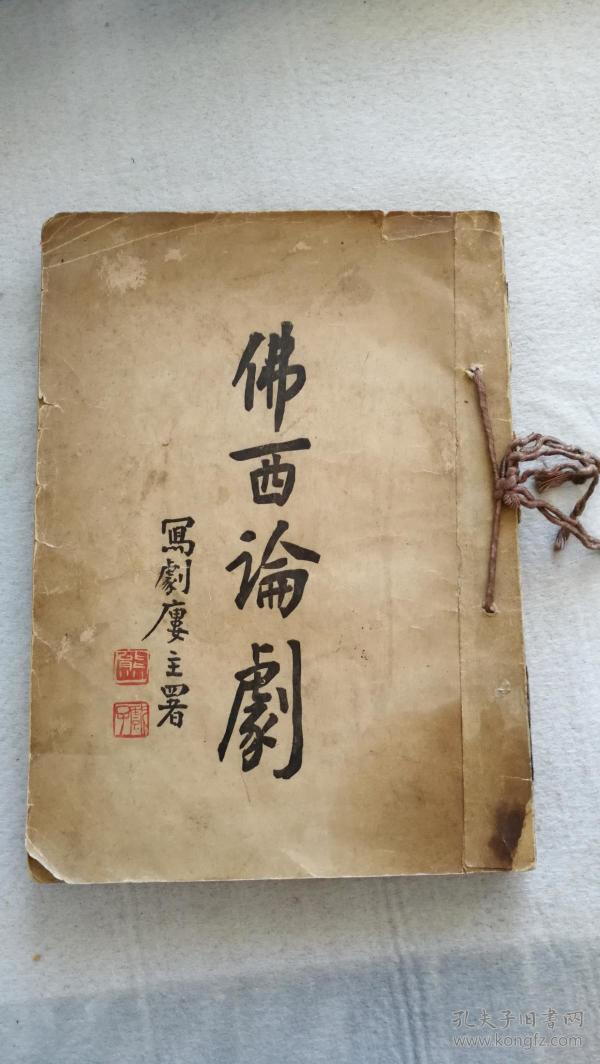 佛西論劇
寫劇廔主署
孔夫子旧书网
www.kongfz.com